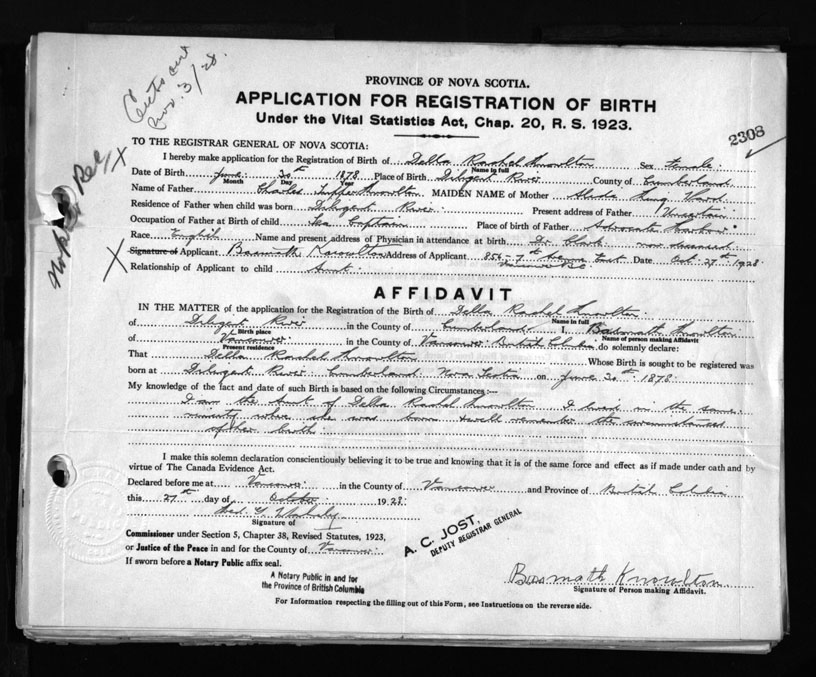 Cert sent
Nov. 3/28.
PROVINCE OF NOVA SCOTIA.
APPLICATION FOR REGISTRATION OF BIRTH
Under the Vital Statistics Act, Chap. 20, R. S. 1923.
2308
TO THE REGISTRAR GENERAL OF NOVA SCOTIA:
I hereby make application for the Registration of Birth of Della Rachel Knowlton Sex Female
Name in full
Date of Birth June 20th 1878 Place of Birth Diligent River County of Cumberland
Month Day Year
Name of Father Charles Tupper Knowlton MAIDEN NAME of Mother Ward
Residence of Father when child was born Diligent River Present address of Father Uncertain
Occupation of Father at Birth of child Sea Captain Place of birth of Father Advocate Harbour
Race English Name and present address of Physician in attendance at birth Dr. Clark now deceased
Signature of Applicant Basmath Knowlton Address of Applicant 856 - 7th Avenue East Date Oct. 27th 1928
Vancouver B.C.
Relationship of Applicant to child Aunt
AFFIDAVIT
IN THE MATTER of the application for the Registration of the Birth of Della Rachel Knowlton
Name in full
of Diligent River in the County of Cumberland I, Basmath Knowlton
Birth place Name of person making Affidavit
of Vancouver in the County of Vancouver British Columbia do solemnly declare:
Present residence
That Della Rachel Knowlton Whose Birth is sought to be registered was
born at Diligent River Cumberland Nova Scotia on June 20th 1878
My knowledge of the fact and date of such Birth is based on the following Circumstances :—
I am the Aunt of Della Rachel Knowlton I lived in the same
vicinity where she was born & well remember the circumstances
of her birth.
I make this solemn declaration conscientiously believing it to be true and knowing that it is of the same force and effect as if made under oath and by
virtue of The Canada Evidence Act.
Declared before me at Vancouver in the County of Vancouver and Province of British Columbia
this 27th day of October 1928
Signature of
Commissioner under Section 5, Chapter 38, Revised Statutes, 1923,
or Justice of the Peace in and for the County of Vancouver
If sworn before a Notary Public affix seal.
A. C. JOST,
DEPUTY REGISTRAR GENERAL
A Notary Public in and for
the Province of British Columbia
Basmath Knowlton
Signature of Person making Affidavit.
For Information respecting the filling out of this Form, see Instructions on the reverse side.